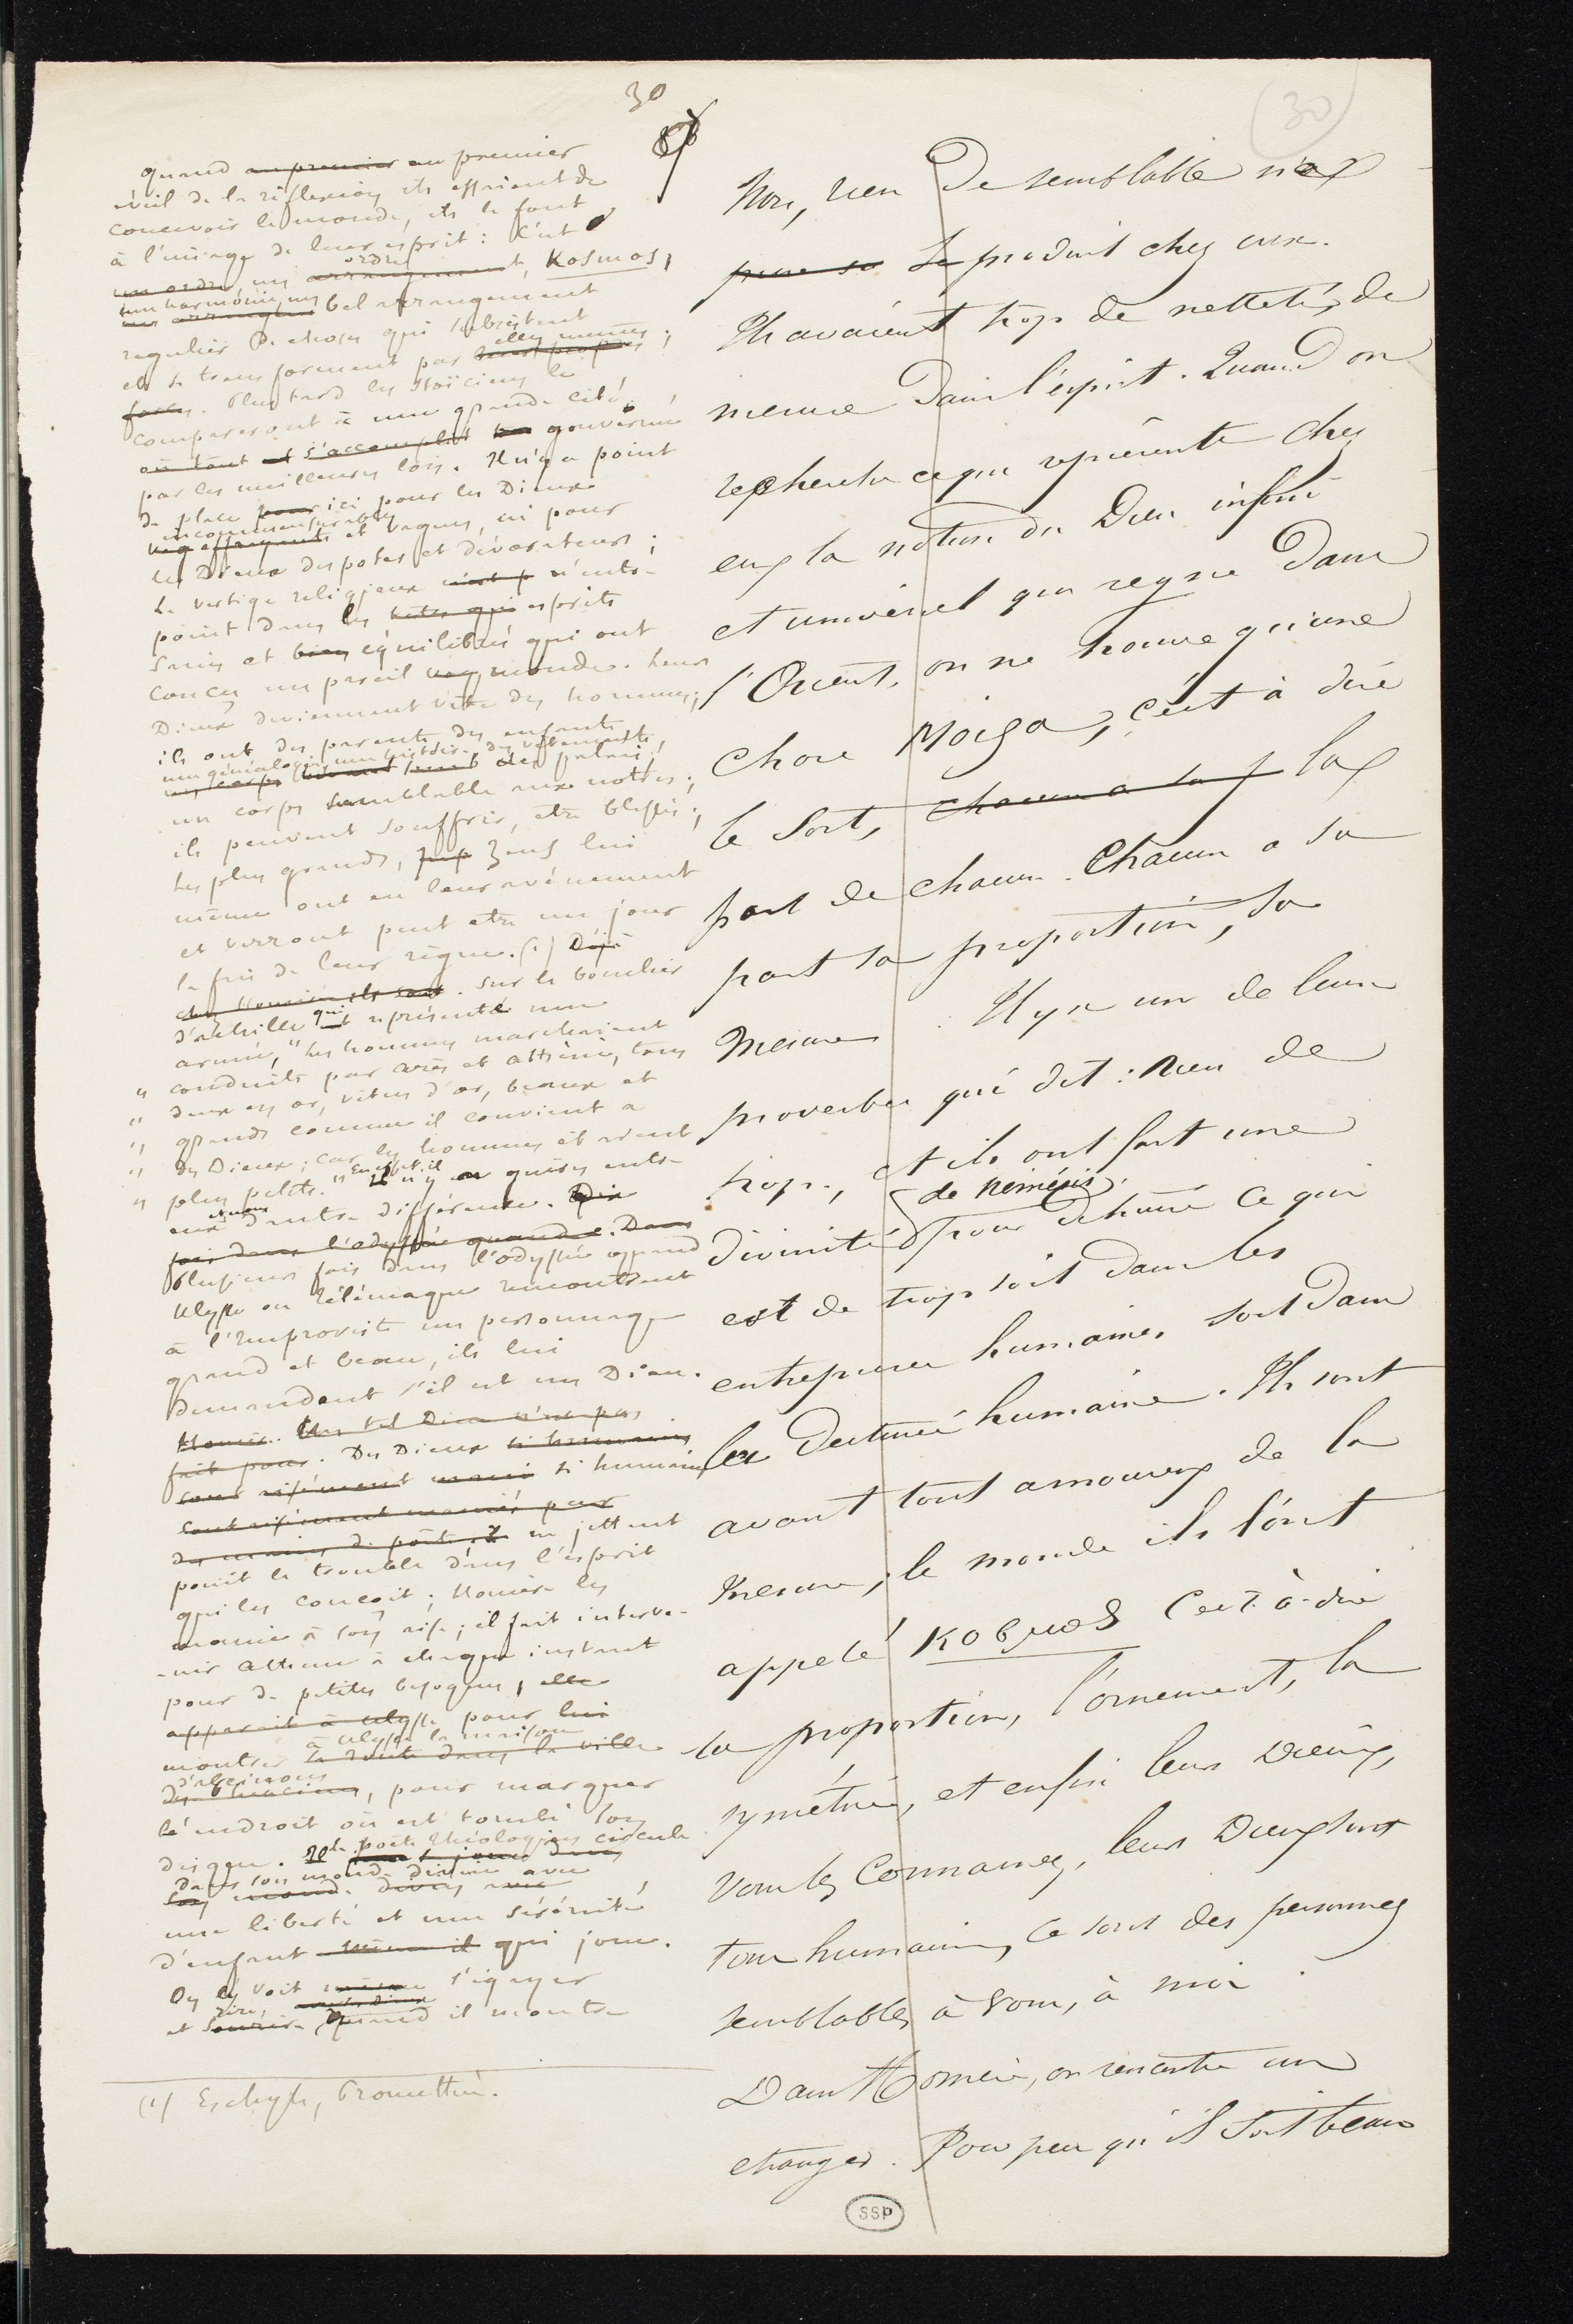 30
(30)
quand au premier au premier
éveil de la réflexion ils essaient de
concevoir le monde, ils le font
à l'image de leur esprit : C'est
ordre
un ordre, un arrangement, Kosmos,
une harmonie, un
bel arrangement
régulier de choses qui subsistent
elles mêmes
et se transforment par ;
forces. Plus tard les stoïciens le
compareront à une grande cité,
où tout et s'accomplit gouvernée
par les meilleures lois. Il n'y a point
de place pour ici pour les Dieux
incommensurables
effrayants et vagues, ni pour
les Dieux despotes et dévorateurs ;
le vertige religieux n'entre
point dans les têtes qui esprits
sains et bien équilibrés qui ont
conçu un pareil monde. Leurs
Dieux deviennent vite des hommes ;
ils ont des parents, des enfants
une généalogie, une histoire, des vêtements,
des palais,
un corps semblable aux nôtres ;
ils peuvent souffrir, être blessés ;
les plus grands, Jup Zeus lui
même ont eu leur avènement
et verront peut être un jour
la fin de leur règne. (1) Déjà
chez Homère ils sont. Sur le bouclier
qui
d'Achille représente une
armée, "les hommes marchaient
" conduits par Arès et Athènè, tous
" deux en or, vêtus d'or, beaux et
" grands comme il convient a
" des Dieux ; car les hommes étaient
" plus petits." En effet, il n'y a guères entre
et nous
eux d'autre différence. Dix
fois dans l'odyssée quand . Dans
Plusieurs fois dans l'odyssée quand
Ulysse ou Télémaque rencontrent
à l'improviste un personnage
grand et beau, ils lui
demandent s'il est un Dieu.
Homère. Un tel Dieu n'est pas
fait pour. Des Dieux si humains
sont aisément si humains
sont aisément maniés par
des mains de poète, ne jettent
point le trouble dans l'esprit
qui les conçoit ; Homère les
manie à son aise ; il fait interve-
-nir Athènè à chaque instant
pour de petites besognes, elle
apparait à Ulysse pour lui
à Ulysse la maison
montrer la route dans la ville
d'Alcinoüs
des Phéaciens, pour marquer
l'endroit où est tombé son
disque. Le poète théologien circule
dans son monde divin avec
son monde divin avec
une liberté et une sérénité
d'enfant qui joue.
On le voit s'égayer
rire,
et sourire quand il montre
(1) Eschyle, Prométhée.
Non, rien de semblable n'a
se produit chez eux.
Ils avaient trop de netteté, de
mesure dans l'esprit. Quand on
recherche ce qui représente chez
eux la notion du Dieu infini
et universel qui regne dans
l'Orient, on ne trouve qu'une
chose Μοιρα, c'est à dire
le Sort, chacun a sa la
part de chacun. Chacun a sa
part sa proportion, sa
Mesure. Il y a un de leurs
proverbes qui dit : rien de
trop, et ils ont fait une
de Némésis
divinité pour détruire ce qui
est de trop soit dans les
entreprises humaines soit dans
la Destinée humaine. Ils sont
avant tout amoureux de la
Mesure, le monde ils l'ont
appelé κοσμος C'est-à-dire
la proportion, l'ornement, la
symétrie, et enfin leurs Dieux,
vous les connaissez, leurs Dieux sont
tous humains, ce sont des personnes
semblables à vous, à moi.
Dans Homère, on rencontre un
étranger. Pour peu qu'il soit beau
SSP